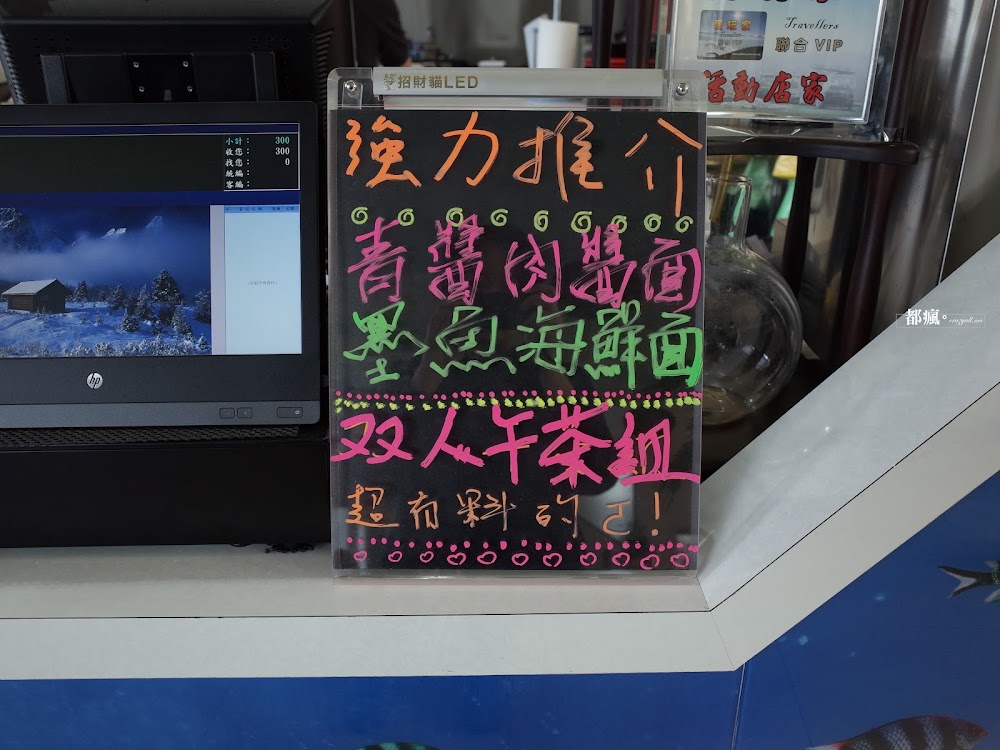 小計： 300
收您： 300
找您： 0
統編：
客編：
hp
招財貓LED
強力推介
青醬肉醬面
墨魚海鮮面
双人午茶組
超有料的ㄛ！
Travellers
聯合VIP
活動店家
都瘋。